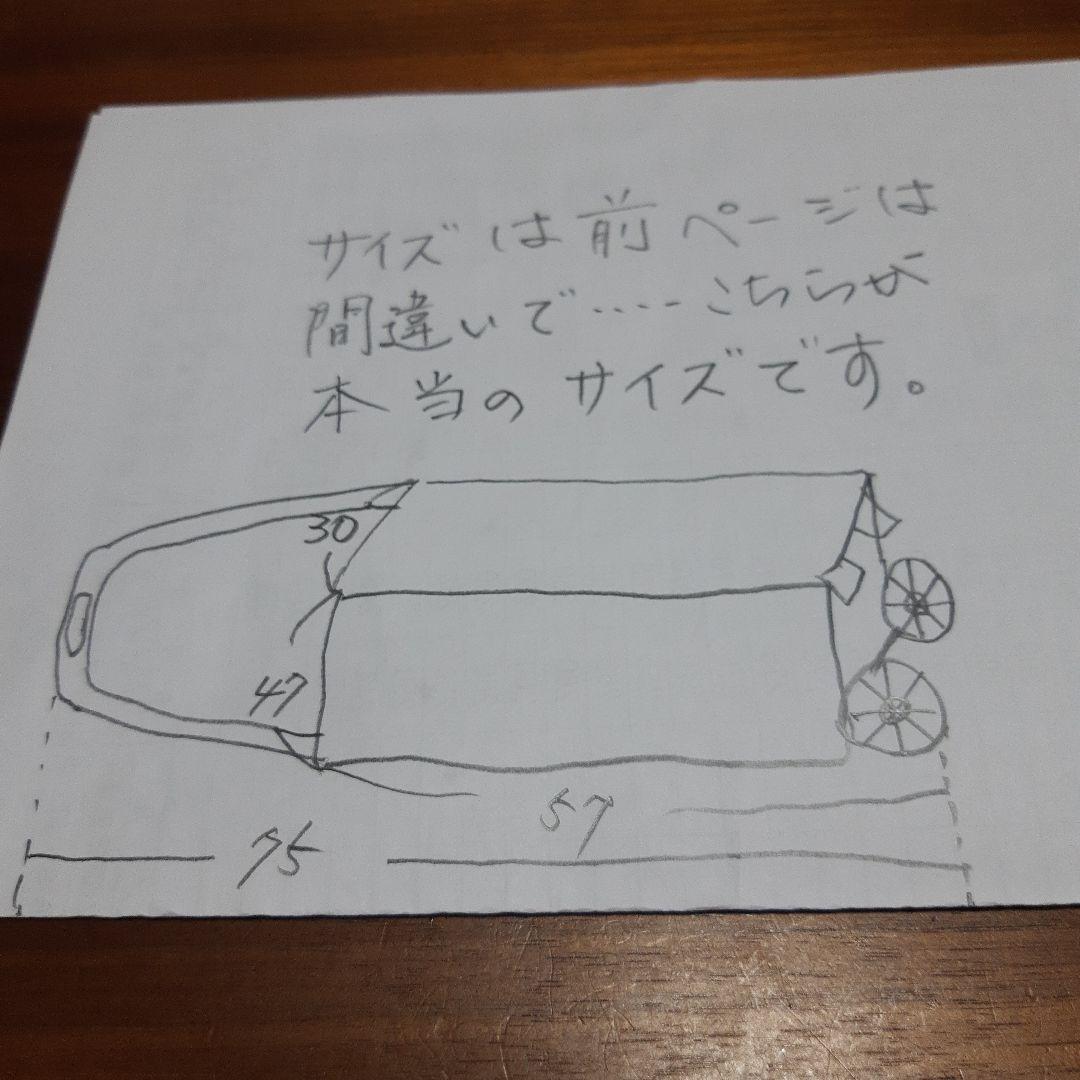 サイズは前ページは
間違いで‥‥こちらが
本当のサイズです。
30
47
57
75